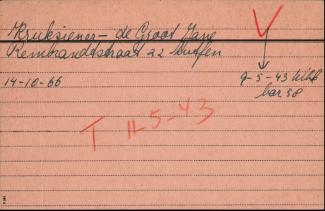 Kruksiener - de Groot Jane
Rembrandtstraat 22 Zutfen
14-10-66
7-5-43 Wbk
bar 58
T 11-5-43